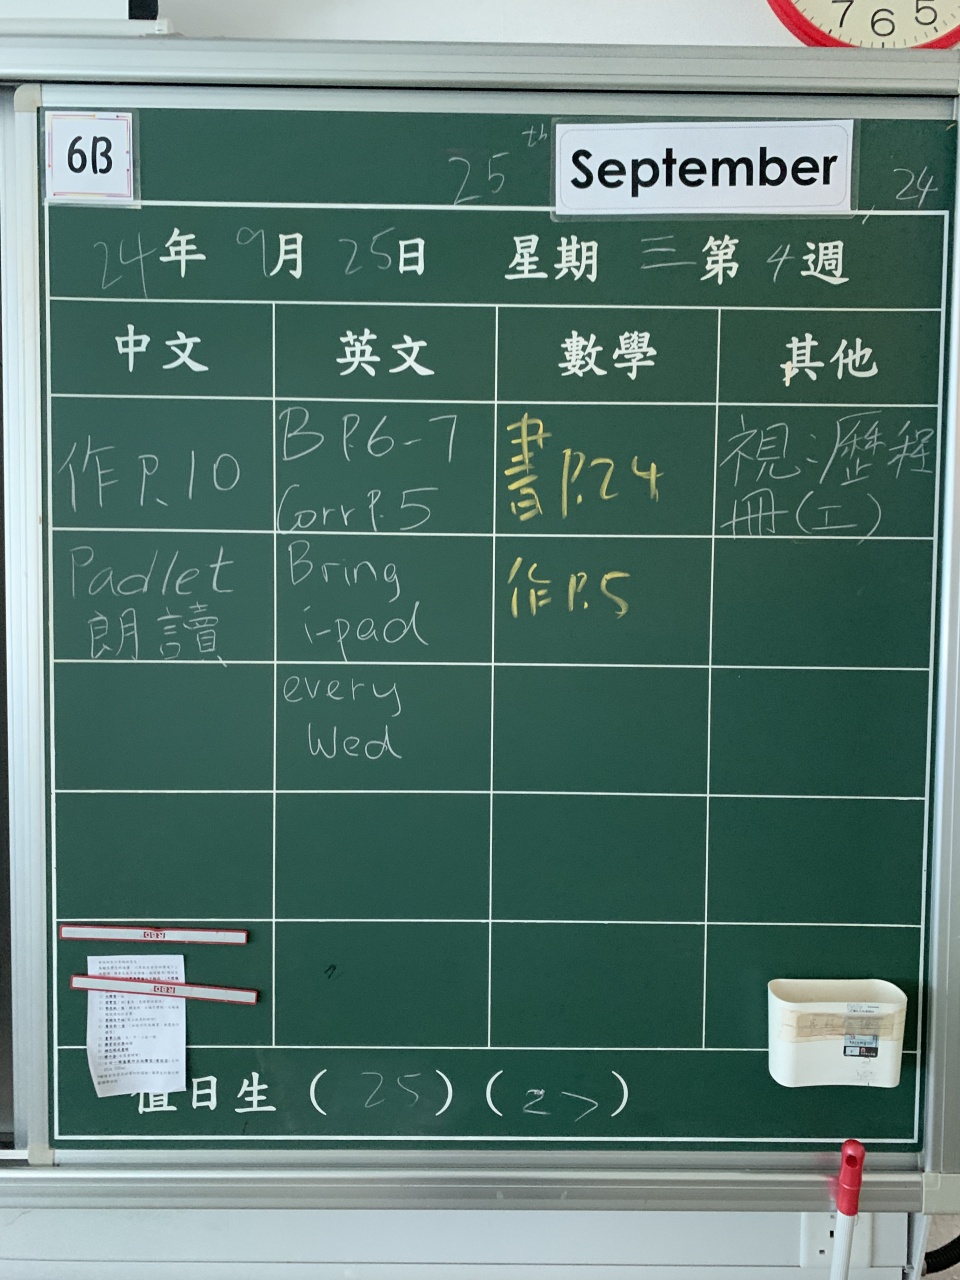 7 6 5
6B
25th September, 24
24年 9月 25日 星期 三 第 4 週
中文 英文 數學 其他
作P.10
B P.6-7
Corr P.5
書P.24
視:歷程
冊(工)
Padlet
朗讀
Bring
i-pad
作P.5
every
Wed
RBD
RBD
值日生 (25) (27)